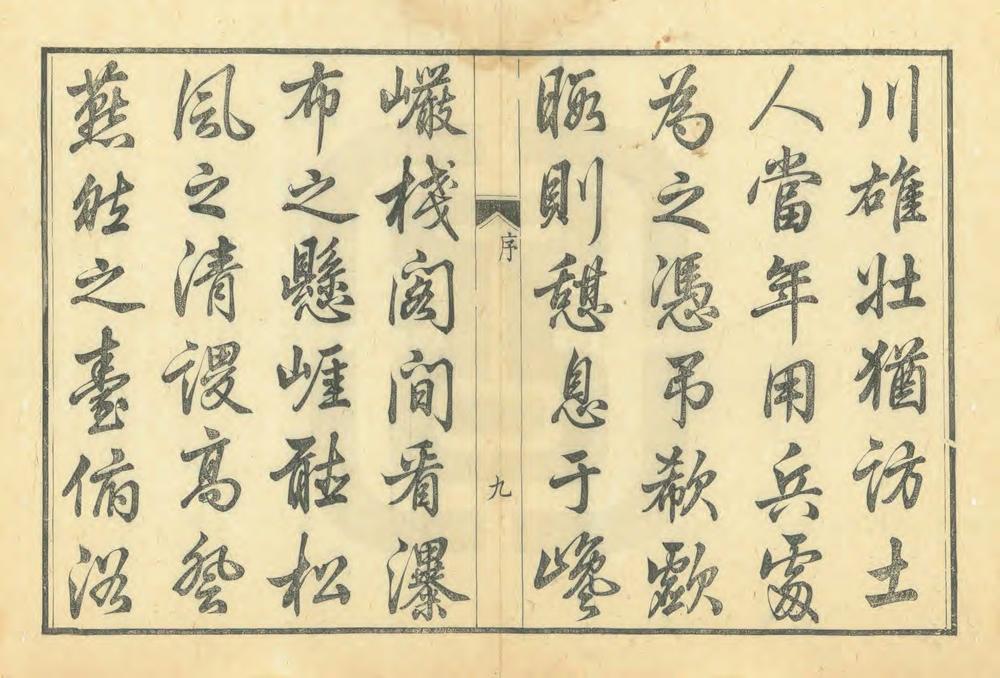 川雄壯猶訪土
人當年用兵處
為之憑吊欷歔
暇則憩息于巉
序
九
巖棧閣間看瀑
布之懸崖聽松
風之清謖高登
燕然之臺俯